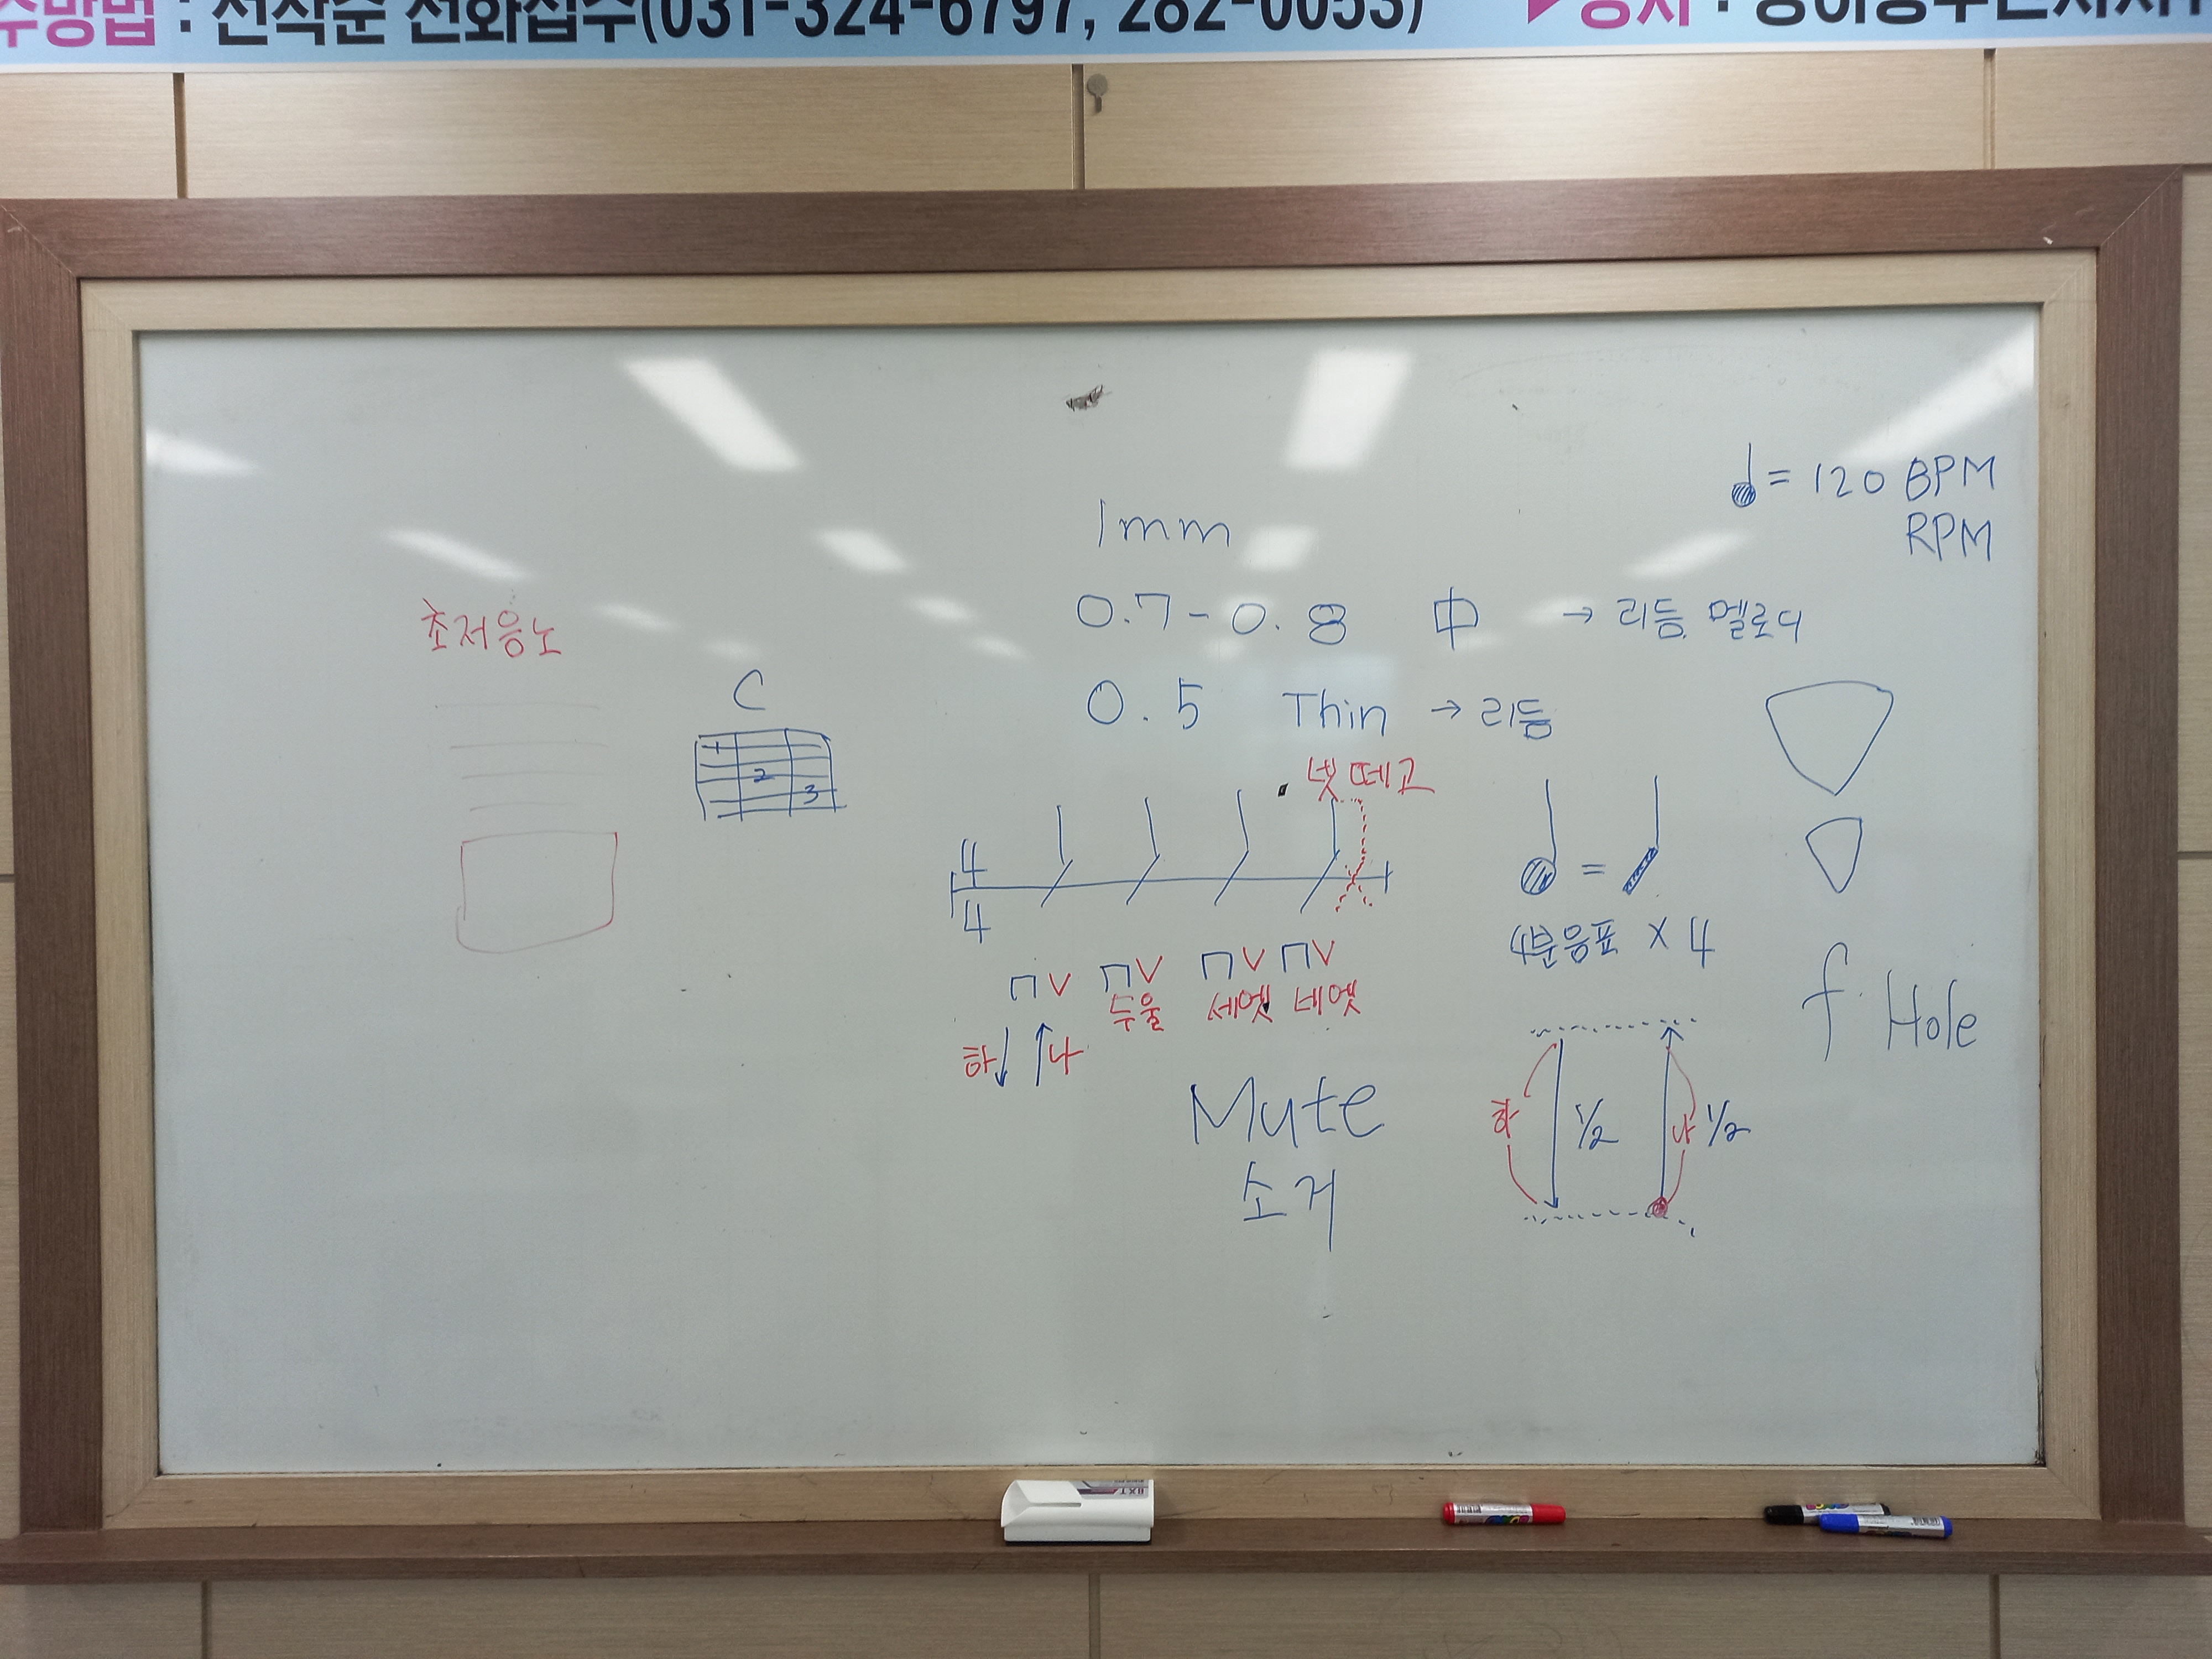 수방법 : 선착순 전화접수(031-324-6797, 282-0053)
= 120 BPM
RPM
1mm
0.7-0.8 中 → 리듬. 멜로디
0.5 Thin → 리듬
초저응노
C
1
2
3
넷 떼고
4
4
=
4분음표 X 4
⊓V ⊓V ⊓V ⊓V
두울 세엣 네엣
하 나
f Hole
Mute
소거
하 1/2 나 1/2